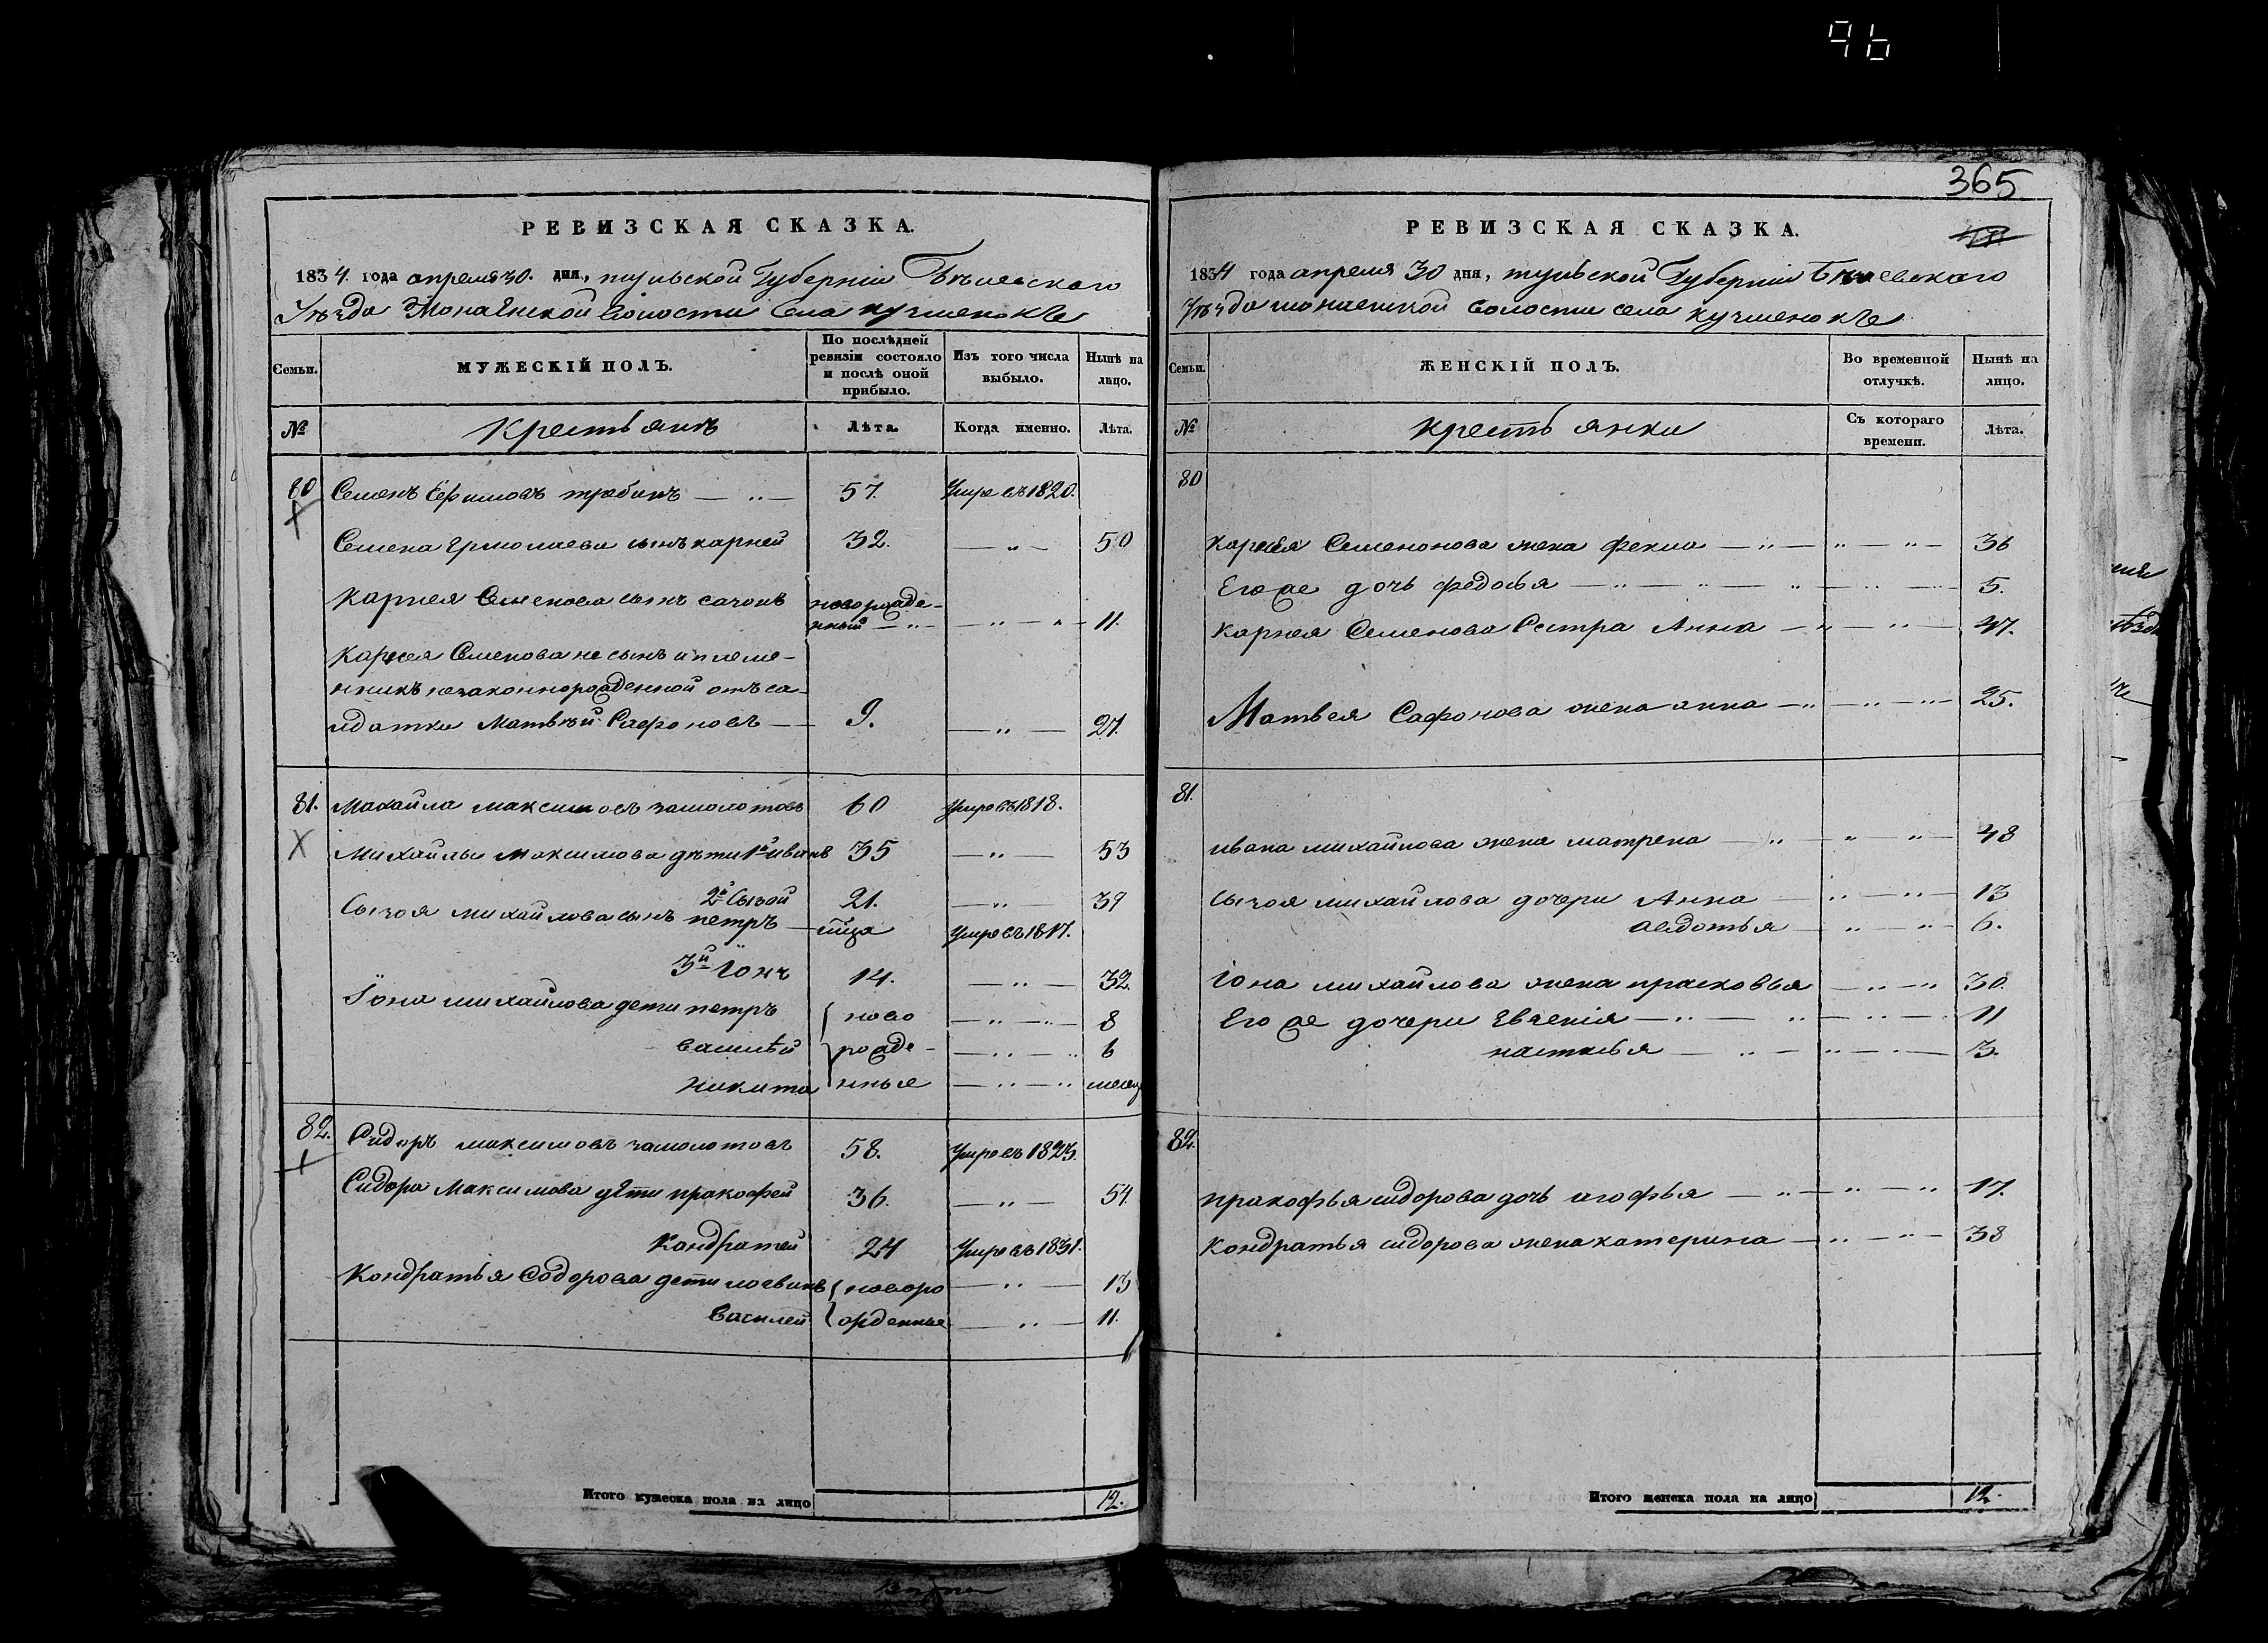 96
РЕВИЗСКАЯ СКАЗКА.
1834. года апреля 30. дня, тульской Губернiи Бѣлевскаго
Уѣзда Монаенской волости села кучменокъ
Семьи. МУЖЕСКIЙ ПОЛЪ. По послѣдней ревизiи состояло и послѣ оной прибыло. Изъ того числа выбыло. Нынѣ на лицо.
№ Крестьянъ Лѣта. Когда именно. Лѣта.
80 Семенъ Ефимовъ — " — 57. Умре въ 1820.
Семена Ермолаева сынъ карней 32. — " — 50
Карнея Семенова сынъ новорожде-
нный — " — — " — " — 11.
Карнея Семенова не сынъ и племе-
нникъ незаконнорожденной отъ са-
лдатки Матвѣй Сафоновъ — 9. — " — 27.
81. Михайла максимовъ замолотовъ 60 умре въ 1818.
Михайлы Максимова дѣти 1й иванъ 35 — " — 53
2й Сызой 21. — " — 39
Сызоя михайлова сынъ петръ — умре въ 1817.
3й Iонъ 14. — " — 32.
Iона михайлова дети петръ ново — " — " — 8
василѣй рожде- — " — " 6
никита нные — " — "
82. Сидоръ максимовъ замолотовъ 58. Умре въ 1823.
Сидора Максимова дѣти прокофей 36. — " — 54.
Кондратей 24 Умре въ 1831.
Кондратья Содорова дети новоро — " — 13
Василей жденные — " — 11.
Итого мужеска пола на лицо 12.
365
РЕВИЗСКАЯ СКАЗКА.
1834 года апреля 30 дня, тульской Губернiи Белевскаго
Уѣзда монаенской волости села кучменокъ
Семьи. ЖЕНСКIЙ ПОЛЪ. Во временной отлучкѣ. Нынѣ на лицо.
№ крестьянки Съ котораго времени. Лѣта.
80
Карнея Семенонова жена фекла — " — " — " — 36
Его же дочь федосья — " — " — " — 5.
Карнея Семенова Сестра Анна — " — " — 47.
Матвея Сафонова жена анна — " — " — " — 25.
81.
ивана михайлова жена матрена — " — " — " — 48
сызоя михайлова дочери Анна — " — " — 13
авдотья — " — " — 6.
Iона михайлова жена прасковья — " — " 30.
Его же дочери Евгенiя — " — " — " — 11
настасья — " — " — " — 3.
82.
прокофья сидорова дочь агофья — " — " — " 17.
Кондратья сидорова жена катерина — " — " — 38
Итого женска пола на лицо 12